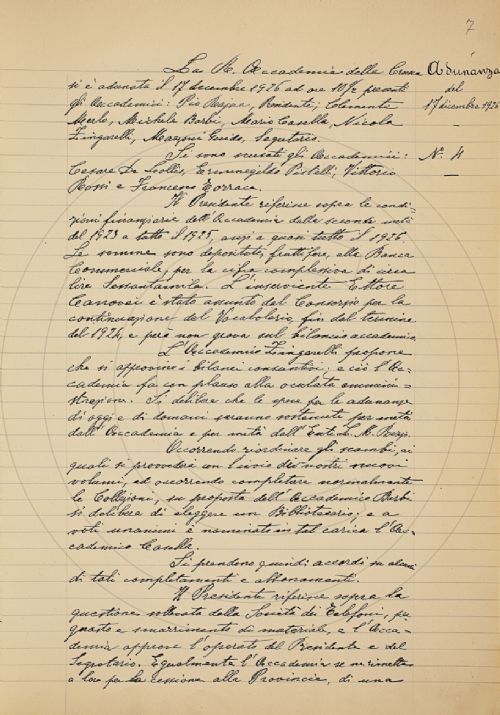 7
La R. Accademia della Crusca
si è adunata il 17 dicembre 1926 ad ore 10½ presenti
gli Accademici: Pio Rajna, Presidente; Clemente
Merlo, Michele Barbi, Mario Casella, Nicola
Zingarelli, Mazzoni Guido, Segretario.
Si sono scusati gli Accademici:
Cesare De Lollis, Ermenegildo Pistelli, Vittorio
Rossi e Francesco Torraca.
Il Presidente riferisce sopra le condi-
zioni finanziarie dell'Accademia dalla seconda metà
del 1923 a tutto il 1925, anzi a quasi tutto il 1926.
Le somme sono depositate, fruttifere, alla Banca
Commerciale, per la cifra complessiva di circa
lire Sessantamila. L'inserviente Ettore
Canovai è stato assunto dal Consorzio per la
continuazione del Vocabolario fin dal termine
del 1924, e però non grava sul bilancio accademico.
L'Accademico Zingarelli propone
che si approvino i bilanci consuntivi; e ciò l'Ac-
cademia fa con plauso alla oculata amminist-
strazione. Si delibera che le spese per le adunanze
di oggi e di domani saranno sostenute per metà
dall'Accademia e per metà dall'Ente
Occorrendo riordinare gli scambi, ai
quali si provvederà con l'invio dei nostri nuovi
volumi, ed occorrendo completare normalmente
le Collezioni, su proposta dell'Accademico Barbi
si delibera di eleggere un Bibliotecario; e a
voti unanimi è nominato in tal carica l'Ac-
cademico Casella.
Si prendono quindi accordi su alcuni
di tali completamenti e abbonamenti.
Il Presidente riferisce sopra la
questione sollevata dalla Società dei Telefoni, per
guasto e smarrimento di materiale, e l'Acca-
demia approva l'operato del Presidente e del
Segretario. Egualmente l'Accademia se ne rimette
a loro per la cessione alla Provincia, di una
Adunanza
del
17 dicembre 1926
N. 4